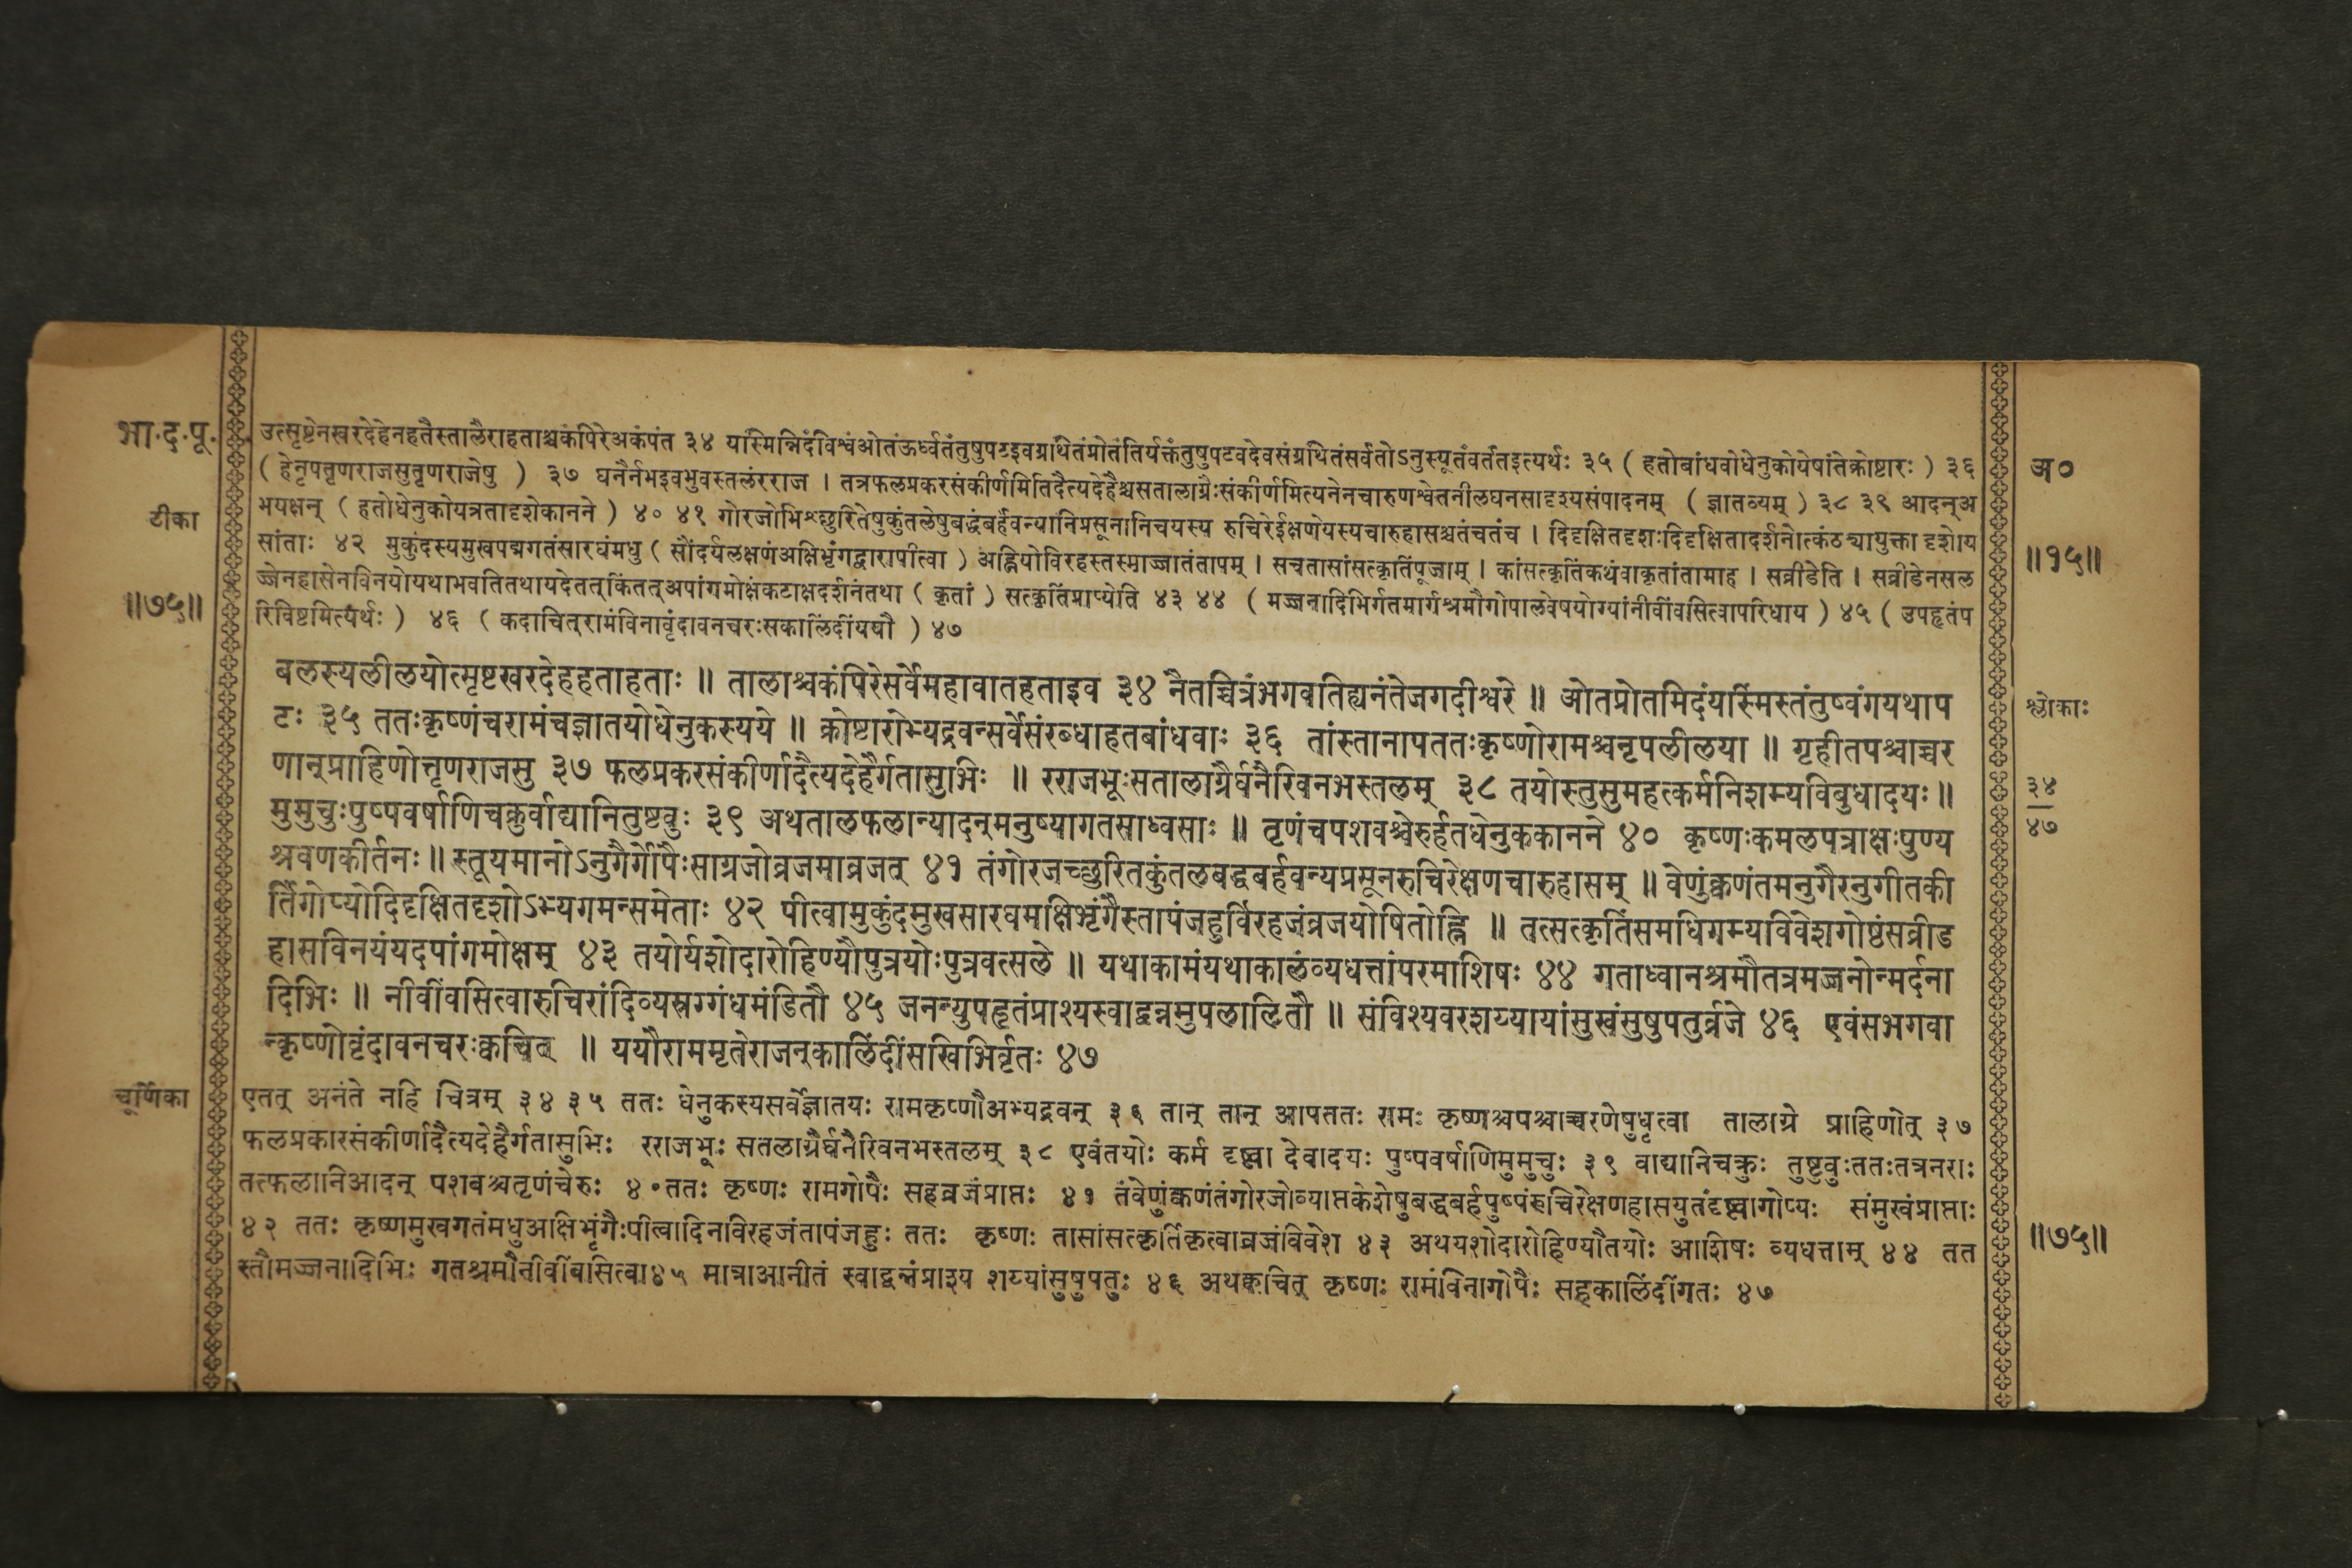 भा.द.पू.
टीका
॥७५॥
उत्सृष्टेनखरदेहेनहतैस्तालैराहताश्चकंपिरेअकंपंत ३४ यस्मिन्निदंविश्वंओतंऊर्ध्वतंतुषुपटइवग्रथितंप्रोतंतिर्यक्तंतुषुपटवदेवसंग्रथितंसर्वतोऽनुस्यूतंवर्ततइत्यर्थः ३५ ( हतोबांधवोधेनुकोयेषांतेक्रोष्टारः ) ३६
( हेनृपतृणराजसुतृणराजेषु ) ३७ घनैर्नभइवभुवस्तलंरराज । तत्रफलप्रकरसंकीर्णमितिदैत्यदेहैश्चसतालाग्रैःसंकीर्णमित्यनेनचारुणश्वेतनीलघनसादृश्यसंपादनम् ( ज्ञातव्यम् ) ३८ ३९ आदन्अ
भयक्षन् ( हतोधेनुकोयत्रतादृशेकानने ) ४० ४१ गोरजोभिश्छुरितेषुकुंतलेषुबद्धंबर्हंवन्यानिप्रसूनानिचयस्य रुचिरेईक्षणेयस्यचारुहासश्चतंचतंच । दिदृक्षितदृशःदिदृक्षितादर्शनोत्कंठयायुक्ता दृशोय
सांताः ४२ मुकुंदस्यमुखपद्मगतंसारघंमधु ( सौंदर्यलक्षणंअक्षिभृंगद्वारापीत्वा ) अह्नियोविरहस्तस्माज्जातंतापम् । सचतासांसत्कृतिंपूजाम् । कांसत्कृतिंकथंवाकृतांतामाह । सव्रीडेति । सव्रीडेनसल
ज्जेनहासेनविनयोयथाभवतितथायदेतत्किंतत्अपांगमोक्षंकटाक्षदर्शनंतथा ( कृतां ) सत्कृतिंप्राप्येति ४३ ४४ ( मज्जनादिभिर्गतमार्गश्रमौगोपालवेषयोग्यांनीवींवसित्वापरिधाय ) ४५ ( उपहृतंप
रिविष्टमित्यर्थः ) ४६ ( कदाचित्रामंविनावृंदावनचरःसकालिंदींययौ ) ४७
बलस्यलीलयोत्सृष्टखरदेहहताहताः ॥ तालाश्चकंपिरेसर्वेमहावातहताइव ३४ नैतच्चित्रंभगवतिह्यनंतेजगदीश्वरे ॥ ओतप्रोतमिदंयस्मिंस्तंतुष्वंगयथाप
टः ३५ ततःकृष्णंचरामंचज्ञातयोधेनुकस्यये ॥ क्रोष्टारोभ्यद्रवन्सर्वेसंरब्धाहतबांधवाः ३६ तांस्तानापततःकृष्णोरामश्चनृपलीलया ॥ गृहीतपश्चाच्चर
णान्प्राहिणोत्तृणराजसु ३७ फलप्रकरसंकीर्णादैत्यदेहैर्गतासुभिः ॥ रराजभूःसतालाग्रैर्घनैरिवनभस्तलम् ३८ तयोस्तुसुमहत्कर्मनिशम्यविबुधादयः॥
मुमुचुःपुष्पवर्षाणिचक्रुर्वाद्यानितुष्टवुः ३९ अथतालफलान्यादन्मनुष्यागतसाध्वसाः ॥ तृणंचपशवश्चेरुर्हतधेनुककानने ४० कृष्णःकमलपत्राक्षःपुण्य
श्रवणकीर्तनः॥ स्तूयमानोऽनुगैर्गोपैःसाग्रजोव्रजमाव्रजत् ४१ तंगोरजच्छुरितकुंतलबद्धबर्हवन्यप्रसूनरुचिरेक्षणचारुहासम् ॥ वेणुंक्वणंतमनुगैरनुगीतकी
र्तिंगोप्योदिदृक्षितदृशोऽभ्यगमन्समेताः ४२ पीत्वामुकुंदमुखसारघमक्षिभृंगैस्तापंजहुर्विरहजंव्रजयोषितोह्नि ॥ तत्सत्कृतिंसमधिगम्यविवेशगोष्ठंसव्रीड
हासविनयंयदपांगमोक्षम् ४३ तयोर्यशोदारोहिण्यौपुत्रयोःपुत्रवत्सले ॥ यथाकामंयथाकालंव्यधत्तांपरमाशिषः ४४ गताध्वानश्रमौतत्रमज्जनोन्मर्दना
दिभिः ॥ नीवींवसित्वारुचिरांदिव्यस्रग्गंधमंडितौ ४५ जनन्युपहृतंप्राश्यस्वाद्वन्नमुपलालितौ ॥ संविश्यवरशय्यायांसुखंसुषुपतुर्व्रजे ४६ एवंसभगवा
न्कृष्णोवृंदावनचरःक्वचित् ॥ ययौराममृतेराजन्कालिंदींसखिभिर्वृतः ४७
चूर्णिका
एतत् अनंते नहि चित्रम् ३४ ३५ ततः धेनुकस्यसर्वेज्ञातयः रामकृष्णौअभ्यद्रवन् ३६ तान् तान् आपततः रामः कृष्णश्चपश्चाच्चरणेषुधृत्वा तालाग्रे प्राहिणोत् ३७
फलप्रकारसंकीर्णादैत्यदेहैर्गतासुभिः रराजभूः सतलाग्रैर्घनैरिवनभस्तलम् ३८ एवंतयोः कर्म दृष्ट्वा देवादयः पुष्पवर्षाणिमुमुचुः ३९ वाद्यानिचक्रुः तुष्टुवुःततःतत्रनराः
तत्फलानिआदन् पशवश्चतृणंचेरुः ४० ततः कृष्णः रामगोपैः सहव्रजंप्राप्तः ४१ तंवेणुंक्वणंतंगोरजोव्याप्तकेशेषुबद्धबर्हपुष्पंरुचिरेक्षणहासयुतंदृष्ट्वागोप्यः संमुखंप्राप्ताः
४२ ततः कृष्णमुखगतंमधुअक्षिभृंगैःपीत्वादिनविरहजंतापंजहुः ततः कृष्णः तासांसत्कृतिंकृत्वाव्रजंविवेश ४३ अथयशोदारोहिण्यौतयोः आशिषः व्यधत्ताम् ४४ तत
स्तौमज्जनादिभिः गतश्रमौनीवींवासित्वा४५ मात्राआनीतं स्वाद्वन्नंप्राश्य शय्यांसुषुपतुः ४६ अथक्वचित् कृष्णः रामंविनागोपैः सहकालिंदींगतः ४७
अ०
॥१५॥
श्लोकाः
३४
४७
॥७५॥